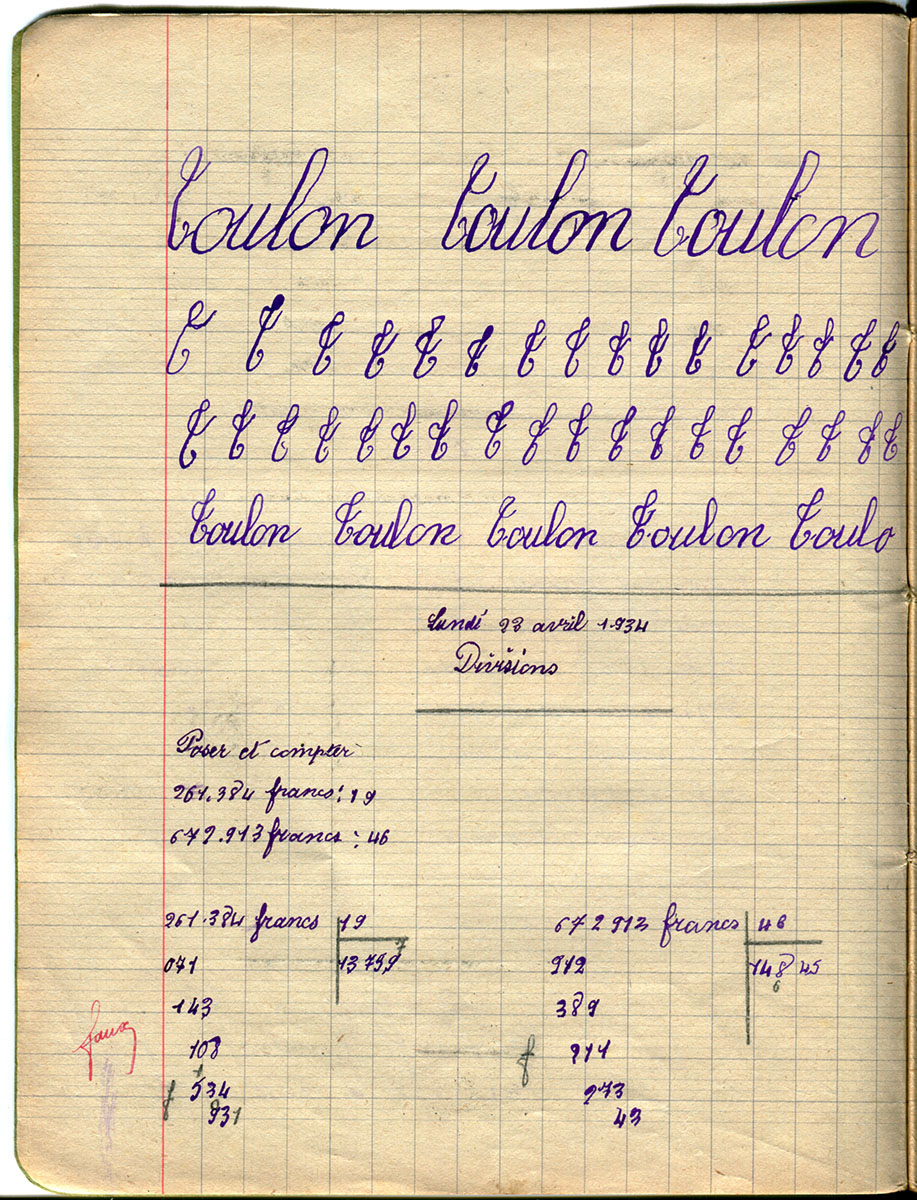 Toulon Toulon Toulon
T T T T T T T T T T T T T T T T
T T T T T T T T T T T T T T T T T T
Toulon Toulon Toulon Toulon Toulo
Lundi 23 avril 1934
Divisions
Poser et compter
261.384 francs : 19
672.913 francs : 46
261.384 francs 19
672913 francs 46
071 13 799 7
912 148 45
6
143
389
faux
108
f 914
1
f 534
273
931
43